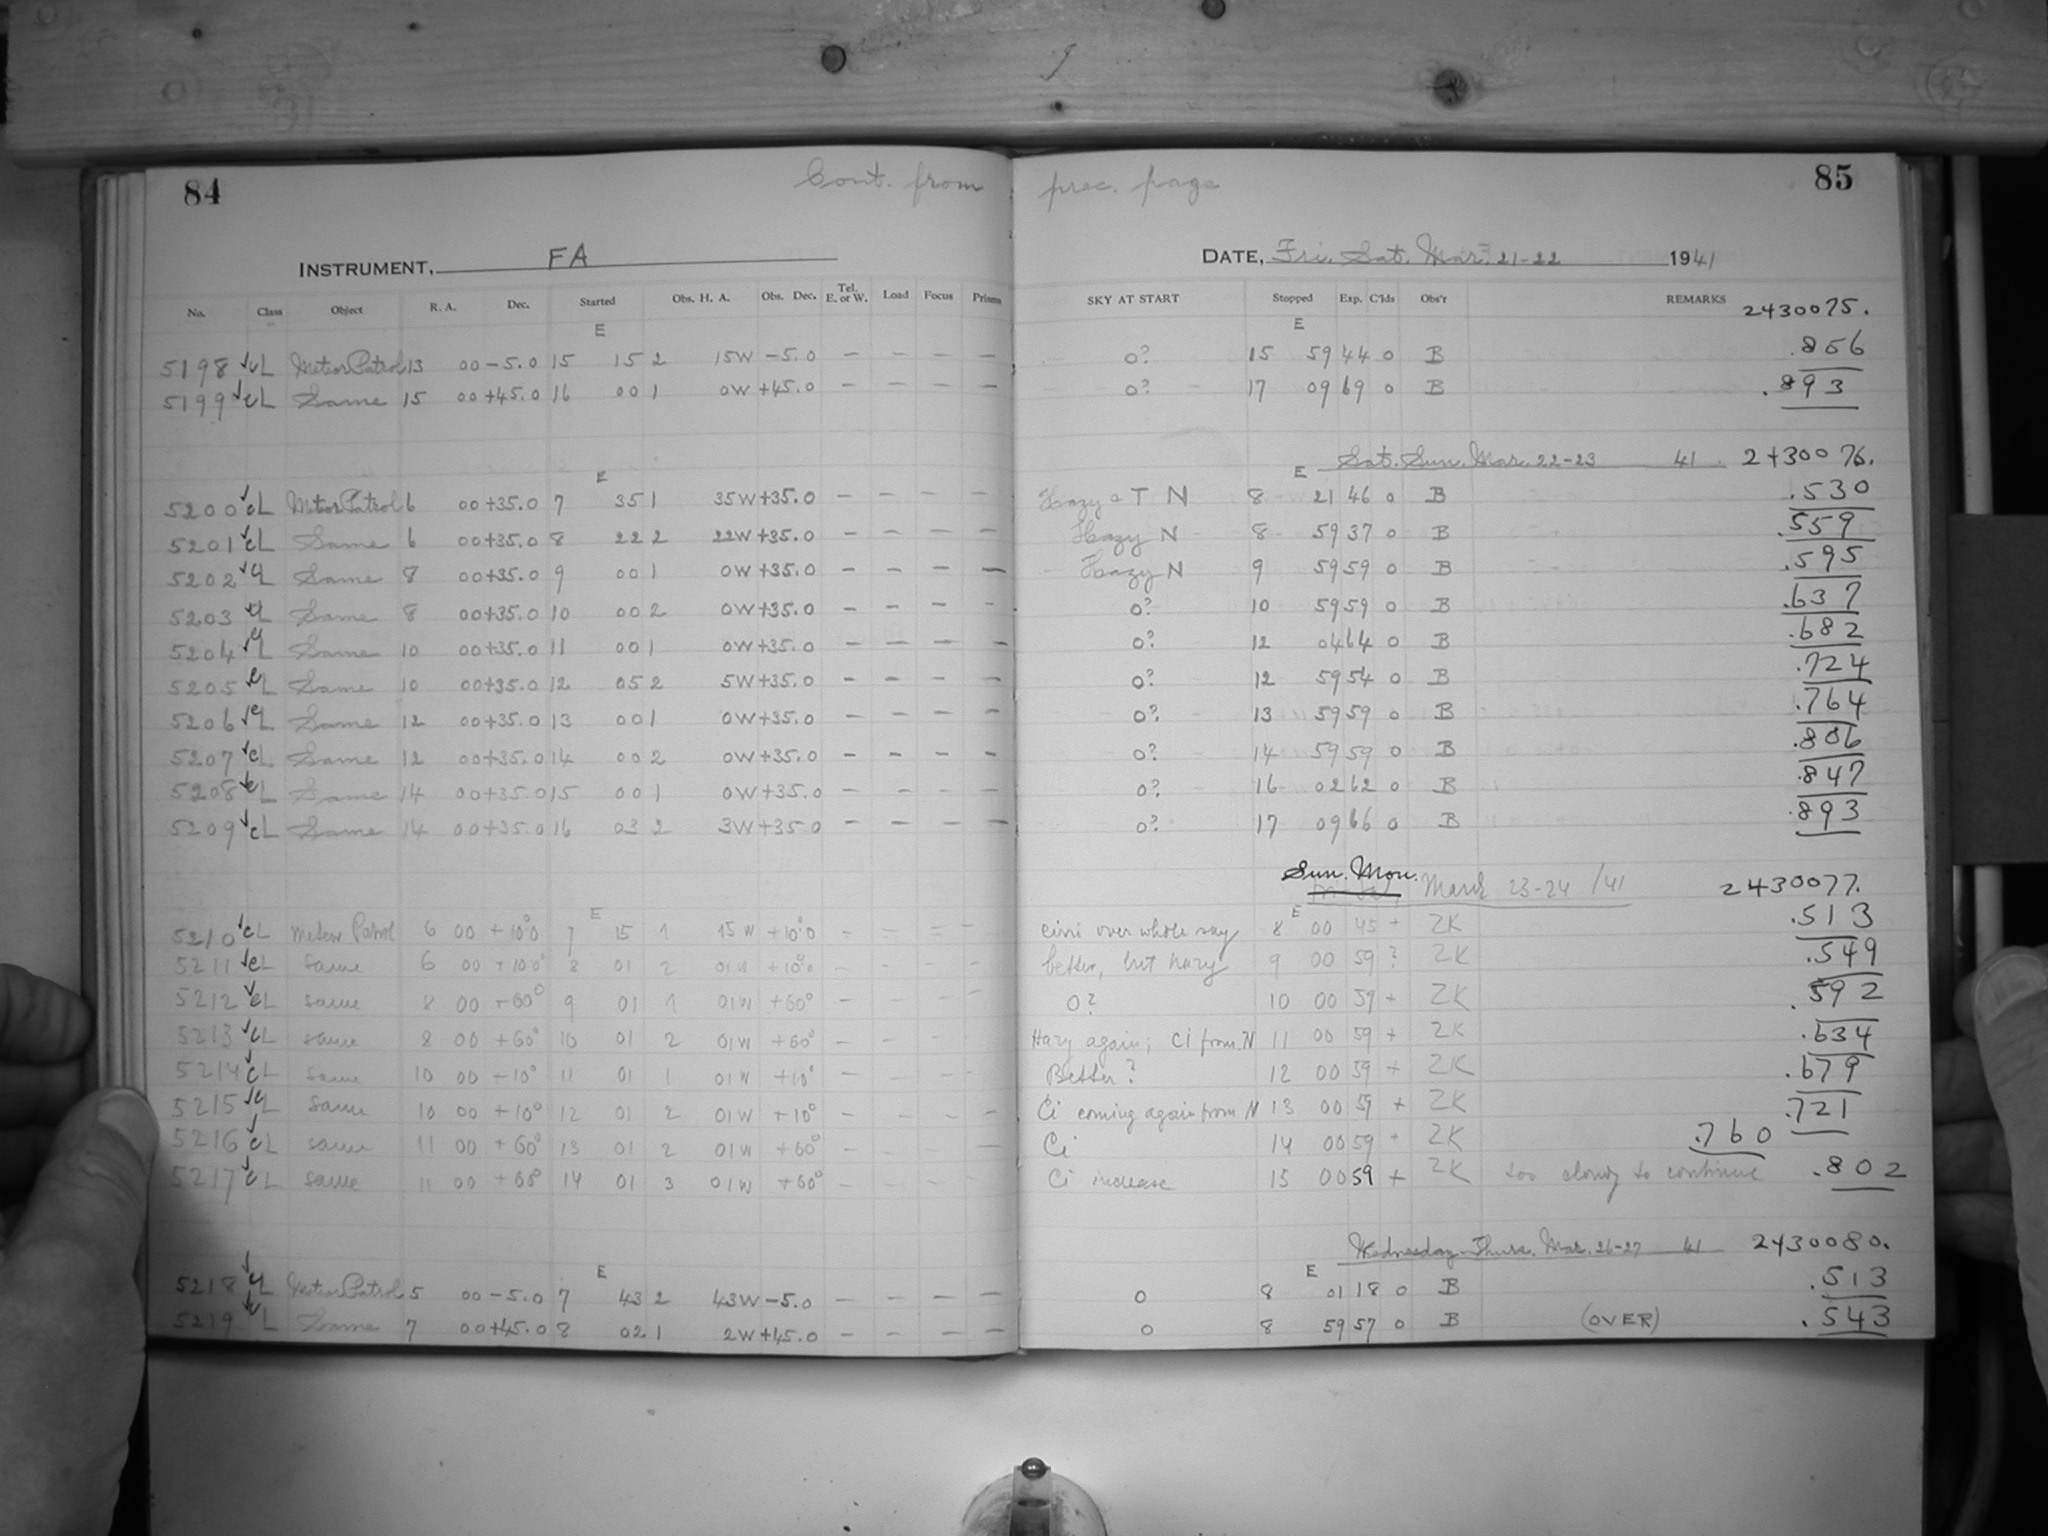 84
Cont. from prec. page
85
INSTRUMENT, FA
DATE, Fri. Sat. Mar. 21-22 1941
No. Class Object R. A. Dec. Started Obs. H. A. Obs. Dec. Tel. E. or W. Load Focus Prisms SKY AT START Stopped Exp. C'lds Obs'r REMARKS
2430075.
E E
5198 cL Meteor Patrol 13 00 -5.0 15 15 2 15W -5.0 - - - - 0? 15 59 44 0 B .856
5199 cL Same 15 00 +45.0 16 00 1 0W +45.0 - - - - 0? 17 09 69 0 B .893
Sat. Sun. Mar. 22-23 41 2430076.
E E
5200 cL Meteor Patrol 6 00 +35.0 7 35 1 35W +35.0 - - - - Hazy a T N 8 21 46 0 B .530
5201 cL Same 6 00 +35.0 8 22 2 22W +35.0 - - - - Hazy N 8 59 37 0 B .559
5202 cL Same 8 00 +35.0 9 00 1 0W +35.0 - - - - Hazy N 9 59 59 0 B .595
5203 cL Same 8 00 +35.0 10 00 2 0W +35.0 - - - - 0? 10 59 59 0 B .637
5204 cL Same 10 00 +35.0 11 00 1 0W +35.0 - - - - 0? 12 04 64 0 B .682
5205 cL Same 10 00 +35.0 12 05 2 5W +35.0 - - - - 0? 12 59 54 0 B .724
5206 cL Same 12 00 +35.0 13 00 1 0W +35.0 - - - - 0? 13 59 59 0 B .764
5207 cL Same 12 00 +35.0 14 00 2 0W +35.0 - - - - 0? 14 59 59 0 B .806
5208 cL Same 14 00 +35.0 15 00 1 0W +35.0 - - - - 0? 16 02 62 0 B .847
5209 cL Same 14 00 +35.0 16 03 2 3W +35.0 - - - - 0? 17 09 66 0 B .893
Sun. Mon. March 23-24 /41 2430077.
E E
5210 cL Meteor Patrol 6 00 +10°0 7 15 1 15W +10°0 - - - - cirri over whole sky 8 00 45 + ZK .513
5211 cL same 6 00 +10°0 8 01 2 01W +10°0 - - - - better, but hazy 9 00 59 ? ZK .549
5212 cL same 8 00 +60° 9 01 1 01W +60° - - - - 0? 10 00 59 + ZK .592
5213 cL same 8 00 +60° 10 01 2 01W +60° - - - - Hazy again; Ci from N 11 00 59 + ZK .634
5214 cL same 10 00 +10° 11 01 1 01W +10° - - - - Better? 12 00 59 + ZK .679
5215 cL same 10 00 +10° 12 01 2 01W +10° - - - - Ci coming again from N 13 00 59 + ZK .721
5216 cL same 11 00 +60° 13 01 2 01W +60° - - - - Ci 14 00 59 + ZK .760
5217 cL same 11 00 +60° 14 01 3 01W +60° - - - - Ci increase 15 00 59 + ZK too cloudy to continue .802
Wednesday-Thurs. Mar. 26-27 41 2430080.
E E
5218 cL Meteor Patrol 5 00 -5.0 7 43 2 43W -5.0 - - - - 0 8 01 18 0 B .513
5219 cL Same 7 00 +45.0 8 02 1 2W +45.0 - - - - 0 8 59 57 0 B (OVER) .543